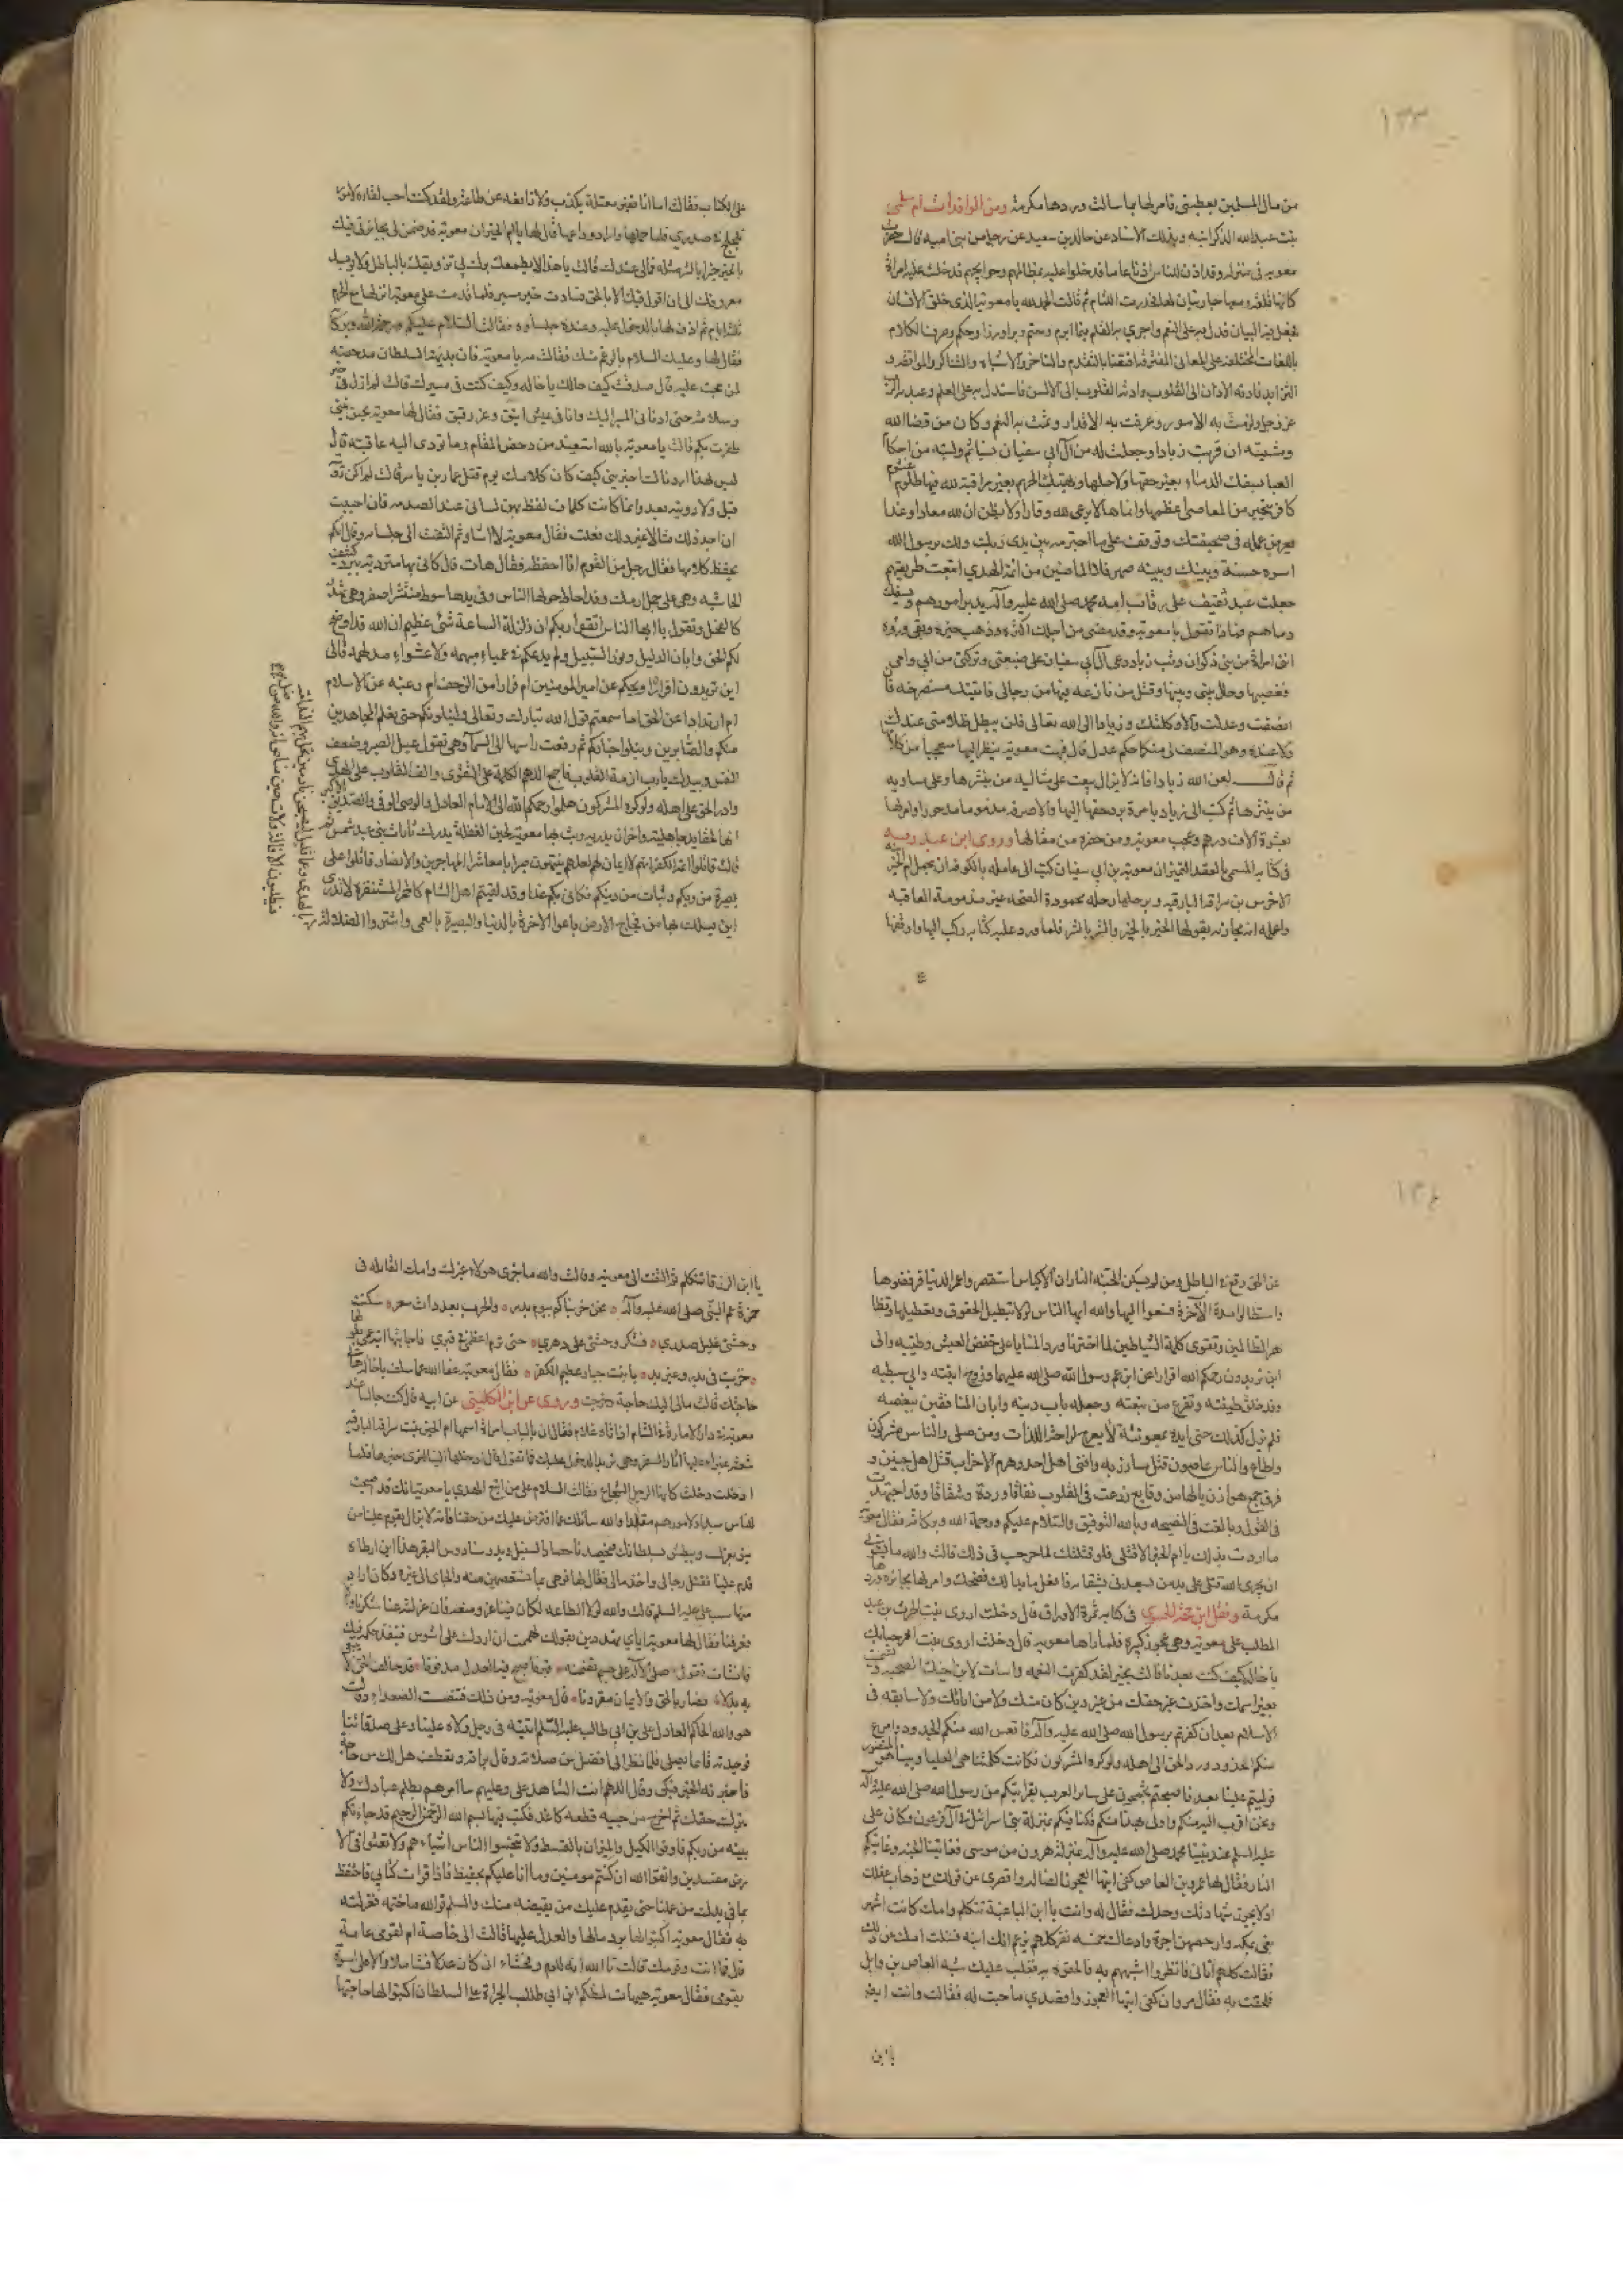 ١٣٣
من مال المسلمين يعطيني فامر لها بما سالت وردها مكرمة ومن الوافدات ام سلمى
بنت عبد الله الذكرانيه وبذلك الاسناد عن خالد بن سعيد عن رجل من بني اميه قال حضرت
معويه في منزله وقد اذن للناس اذنا عاما فدخلوا عليه بمظالمهم وحوايجهم فدخلت عليه امراة
كانها قلة ومعها جاريتان لها فحدرت اللثام ثم قالت الحمد لله يا معوية الذي خلق الانسان
فجعل فيه البيان فدل به على النعم واجري به القلم فيما ابرم وحتم وبرا وذرا وحكم وصرف الكلام
باللغات المختلفة على المعاني المتفرقة
التزايد فادته الاذان الى القلوب وادته القلوب الى الالسن فاستدل به على العلم وعبد به الرب
عز وجل ولزمت به الامور وعرفت به الاقدار وتمت به النعم وكان من قضا الله
ومشيته ان قربت زيادا وجعلت له من آل ابي سفيان نسبا ثم وليته من احكام
العباد يسفك الدماء بغير حقها ولا حلها ويهتك الحرم بغير مراقبة لله فيها ظلوم غشوم
كافر يتخير من المعاصي اعظمها وانما هالا يرعى لله وقارا ولا يظن ان لله معادا وغدا
يعرض عمله في صحيفتك وتوقف على ما اجترم بين يدي ربك ولك برسول الله
اسوة حسنة وبينك وبينه صهر فلا الماضين من ائمة الهدي اتبعت طريقتهم
جعلت عبد ثقيف على رقاب امة محمد صلى الله عليه وآله يدبر امورهم ويسفك
دماهم فماذا تقول يا معوية وقد مضى من اجلك اكثره وذهب خيره وبقي وزره
انني امراة من بني ذكوان وثب زياد دعي آل ابي سفيان على ضيعتي وتركتي من ابي وامي
فغصبها وحال بيني وبينها وقتل من نازعه فيها من رجالي فاتيتك مستصرخة فان
انصفت وعدلت والا وكلتك وزيادا الى الله تعالى فلن يبطل ظلامتي عندك
ولا عنده وهو المنصف لي منكما حكم عدل قال فبهت معوية ينظر اليها متعجبا من كلامها
ثم قال لعن الله زيادا فانه لا يزال يبعث على مثاليه من ينشرها وعلى مساويه
من يثيرها ثم كتب الى زياد يامره برد حقها اليها والا صرفه مذموما مدحورا وامر لها
بعشرة الاف درهم وعجب معوية ومن حضره من مقالها وروى ابن عبد ربه
في كتابه المسمى بالعقد الفريد ان معوية بن ابي سفيان كتب الى عامله بالكوفه ان يحمل ام الخير
الاحرس بن سراقة البارقيه وبرحلها رحله محمودة الصحبه غير مذمومة العاقبه
واعلمه انه مجازيه بقولها الخير بالخير والشر بالشر فلما ورد عليه كتابه ركب اليها واوقفها
على الكتاب فقالت اما انا فغير معتلة بكذب ولا نايغة عن طاعة ولقد كنت احب لقاءه لامور
تلجلج في صدري فلما حملها واراد وداعها قال لها يا ام الخير ان معوية قد ضمن لي بجايزتي فيك
بالخير خيرا وبالشر شرا فمالي عندك قالت يا هذا لا يطمعك برك بي تزويقك بالباطل ولا يوسيك
معرفتك الى ان اقول فيك الا بالحق فسارت خير مسير فلما قدمت على معوية انزلها مع الحرم
ثلثة ايام ثم اذن لها بالدخول عليه وعنده جلساوه فقالت السلام عليكم ورحمة الله وبركاته
فقال لها وعليك السلام بالرغم منك فقالت مه يا معوية فان بديهة السلطان مدحضة
لمن يحب عليه قال صدقت كيف حالك يا خاله وكيف كنت في مسيرك قالت لم ازل في خير
وسلامة حتى ادناني المسير اليك وانا في عيش انيق وعز رقيق فقال لها معوية بحسن نيتي
ظفرت بكم قالت يا معوية بالله استعيذ من دحض المقام وما تودى اليه عاقبته قال
ليس لهذا اردنا لك اخبريني كيف كان كلامك يوم قتل عمار بن ياسر قالت لم اكن زورته
قبل ولا رويته بعد وانما كانت كلمات لفظ بهن لساني عند الصدمه فان احببت
ان اجد ذلك مثالا غير ذلك فعلت فقال معوية لا اشاء ثم التفت الى جلسائه وقال ايكم
يحفظ كلامها فقال رجل من القوم انا احفظه فقال هات قال كاني بها متردية ببرد كثيف
الحاشيه وهي على جمل ارمك وقد احاط حولها الناس وفي يدها سوط منتشر الضفر وهي تهدر
كالفحل وتقول يا ايها الناس اتقوا ربكم ان زلزلة الساعة شئ عظيم ان الله قد اوضح
لكم الحق وابان الدليل ونور السبيل ولم يدعكم في عمياء مبهمه ولا عشواء مدلهمه فالى
اين تريدون افرارا ويحكم عن امير المومنين ام فرارا من الزحف ام رغبه عن الاسلام
ام ارتدادا عن الحق اما سمعتم قول الله تبارك وتعالى ولنبلونكم حتى نعلم المجاهدين
منكم والصابرين ونبلوا اخباركم ثم رفعت راسها الى السماء وهي تقول عيل الصبر وضعف
اليقين وبيدك يا رب ازمة القلوب فاجمع اللهم الكلمة على التقوى والف القلوب على الهدى
واردد الحق على اهله ولو كره المشركون هلموا رحمكم الله الى الامام العادل والوصي الوفي والصديق الاكبر
انها لاحقاد جاهلية واحزان بدرية وثب بها معوية لحين الغفلة يدرك ثارات بني عبد شمس ثم
قالت قاتلوا ائمة الكفر انهم لا ايمان لهم لعلهم ينتهون صبرا يا معاشر المهاجرين والانصار قاتلوا على
بصيرة من ربكم وثبات من دينكم فكاني بكم غدا وقد لقيتم اهل الشام كالحمر المستنفرة لا تدري
اين يسلك بها من فجاج الارض باعوا الاخرة بالدنيا والبصيرة بالعمى واشتروا الضلالة
بالهدى وعما قليل ليصبحن نادمين تحل بهم الندامة
فيطلبون الاقالة ولات حين مناص انه والله من ضل
١٣٤
عن الحق وقع في الباطل ومن لم يسكن الجنة النار ان الاكياس استقصروا عمر الدنيا فرفضوها
واستطالوا مدة الآخرة فسعوا اليها والله ايها الناس لولا تبطيل الحقوق وتعطيل
هم الظالمين وتقوى كلمة الشياطين لما اخترنا ورد المنايا على خفض العيش وطيبه والى
اين تريدون رحمكم الله افرارا عن ابن عم رسول الله صلى الله عليهما وزوج ابنته وابي سبطيه
وقد خلق من طينته وتفرع من نبعته وجعله باب دينه وابان المنافقين ببغضه
فلم يزل كذلك حتى ايده بمعونته لا يعرج لراحة اللذات ومن صلى والناس مشركون
واطاع والناس عاصون قتل مبارزيه وافنى اهل احد وهزم الاحزاب قتل اهل حنين و
فرق جمع هوازن يالها من وقايع زرعت في القلوب نفاقا وردة وشقاقا وقد اجتهدت
في القول وبالغت في النصيحه وبالله التوفيق والسلام عليكم ورحمة الله وبركاته فقال معوية
ما اردت بذلك يا ام الخير الا قتلي فلو قتلتك لما حرجت في ذلك قالت والله ما يسوئني
ان يجرى الله قتلي على يد من يسعدني بشقائه فضحك وامر لها بجايزه ورد
مكرمة ونقل ابن حجة الحموي في كتابه ثمرة الاوراق قال دخلت اروى بنت الحرث بن عبد
المطلب على معوية وهي عجوز كبيرة فلما راها معويه قال دخلت اروى بنت الحرث مرحبا بك
يا خاله كيف كنت بعدنا قالت بخير لقد كفرت النعمه واسات لابن عمك الصحبه وتسميت
بغير اسمك واخذت غير حقك من غير دين كان منك ولا من ابائك ولا سابقه في
الاسلام بعد ان كفرتم برسول الله صلى الله عليه وآله فاتعس الله منكم الجدود واضرع
منكم الخدود ورد الحق الى اهله ولو كره المشركون فكانت كلمتنا هي العليا ونبينا هو المنصور
فوليتم علينا بعدنا فاصبحتم تحتجون على ساير العرب بقرابتكم من رسول الله صلى الله عليه وآله
ونحن اقرب اليه منكم واولى بهذا منكم فكنا فيكم بمنزلة بني اسرائيل في آل فرعون وكان علي
عليه السلم عند نبينا محمد صلى الله عليه وآله بمنزلة هرون من موسى فغايتنا الجنة وغايتكم
النار فقال لها عمرو بن العاص كفي ايتها العجوز الضاله واقصري عن قولك مع ذهاب عقلك
اذ لا يجوز شهادتك وحدك فقال له وانت يا ابن الباغية تتكلم وامك كانت اشهر
بغي بمكه وارخصهن اجرة وادعاك خمسه نفر كلهم يزعم انك ابنه فسئلت امك عن ذلك
فقالت كلهم اتاني فانظروا اشبههم به فالحقوه به فغلب عليك شبه العاص بن وايل
فلحقت به فقال مروان كفي ايتها العجوز واقصدي ما جئت له فقالت وانت ايضا
يا ابن
يا ابن الزرقا تتكلم ثم التفت الى معوية وقالت والله ما جرى هولاء غيرك وامك القائله في
حمزة عم النبي صلى الله عليه وآله نحن جزيناكم بيوم بدر والحرب بعد ذات سعر سكنت
وحشي غليل صدري فشكر وحشي على دهري حتى ترم اعظمي في قبري فاجابتها ابنة عمي
خزيت في بدر وغير بدر يا بنت جبار عظيم الكفر فقال معوية عفا الله عما سلف يا خاله هات
حاجتك قالت مالي اليك حاجة وخرجت وروى عن ابن الكلبي عن ابيه قال كنت جالسا عند
معوية في دار الامارة في الشام اذ اتاه غلام فقال ان بالباب امراة اسمها ام الخير بنت سراقة البارقيه
شعثر غبراء عليها آثار السفر وهي تريد الدخول عليك فما تقول قال ادخلها الينا
ادخلت دخلت كانها الرجل الشجاع فقالت السلام على من اتبع الهدي يا معوية انك قد اصبحت
للناس سيدا ولامورهم مقلدا والله سائلك عما افترض عليك من حقنا فانه لا يزال يقوم علينا من
ينوء بعزك ويبطش بسلطانك فيحصدنا حصاد السنبل ويدوسنا دوس البقر هذا ابن ارطاه
قدم علينا فقتل رجالي واخذ مالي فقال لها
قالت والله لولا الطاعه لكان فينا عز ومنعه فان عزلته عنا شكرناك والا
فعرفناك فقال لها معوية اياي تهددين بقومك لهممت ان اردك على اشوس فينفذ حكمه فيك
فانشات تقول صلى الاله على جسم تضمنه قبر فاصبح فيه العدل مدفونا قد حالف الحق لا يبغي
به بدلا فصار بالحق والايمان مقرونا قال معوية ومن ذلك فتنفست الصعداء وقالت
هو والله الحاكم العادل علي بن ابي طالب عليه السلم اتيته في رجل ولاه علينا وعلى صدقاتنا
فوجدته قايما يصلي فلما نظر الي انفتل من صلاته وقال برافه وتعطف هل لك من حاجة
فاخبرته الخبر فبكى وقال اللهم انت الشاهد علي وعليهم ما امرهم بظلم عبادك ولا
بترك حقك ثم اخرج من جيبه قطعه كاغد فكتب فيها بسم الله الرحمن الرحيم قد جاءتكم
بينه من ربكم فاوفوا الكيل والميزان بالقسط ولا تبخسوا الناس اشياءهم ولا تعثوا في الا
رض مفسدين واتقوا الله ان كنتم مومنين وما انا عليكم بحفيظ فاذا قرات كتابي فاحتفظ
بما في يديك من عملنا حتى يقدم عليك من يقبضه منك والسلم فو الله ما ختمه فعزله
به فقال معوية اكتبوا لها برد مالها والعدل عليها قالت الي خاصة ام لقومي عامة
قال ما انت وقومك قالت تا الله انه للوم وفحشاء ان كان عدلا شاملا والا فلي اسوة
بقومي فقال معوية هيهات لمظكم ابن ابي طالب الجراة على السلطان اكتبوا لها حاجتها